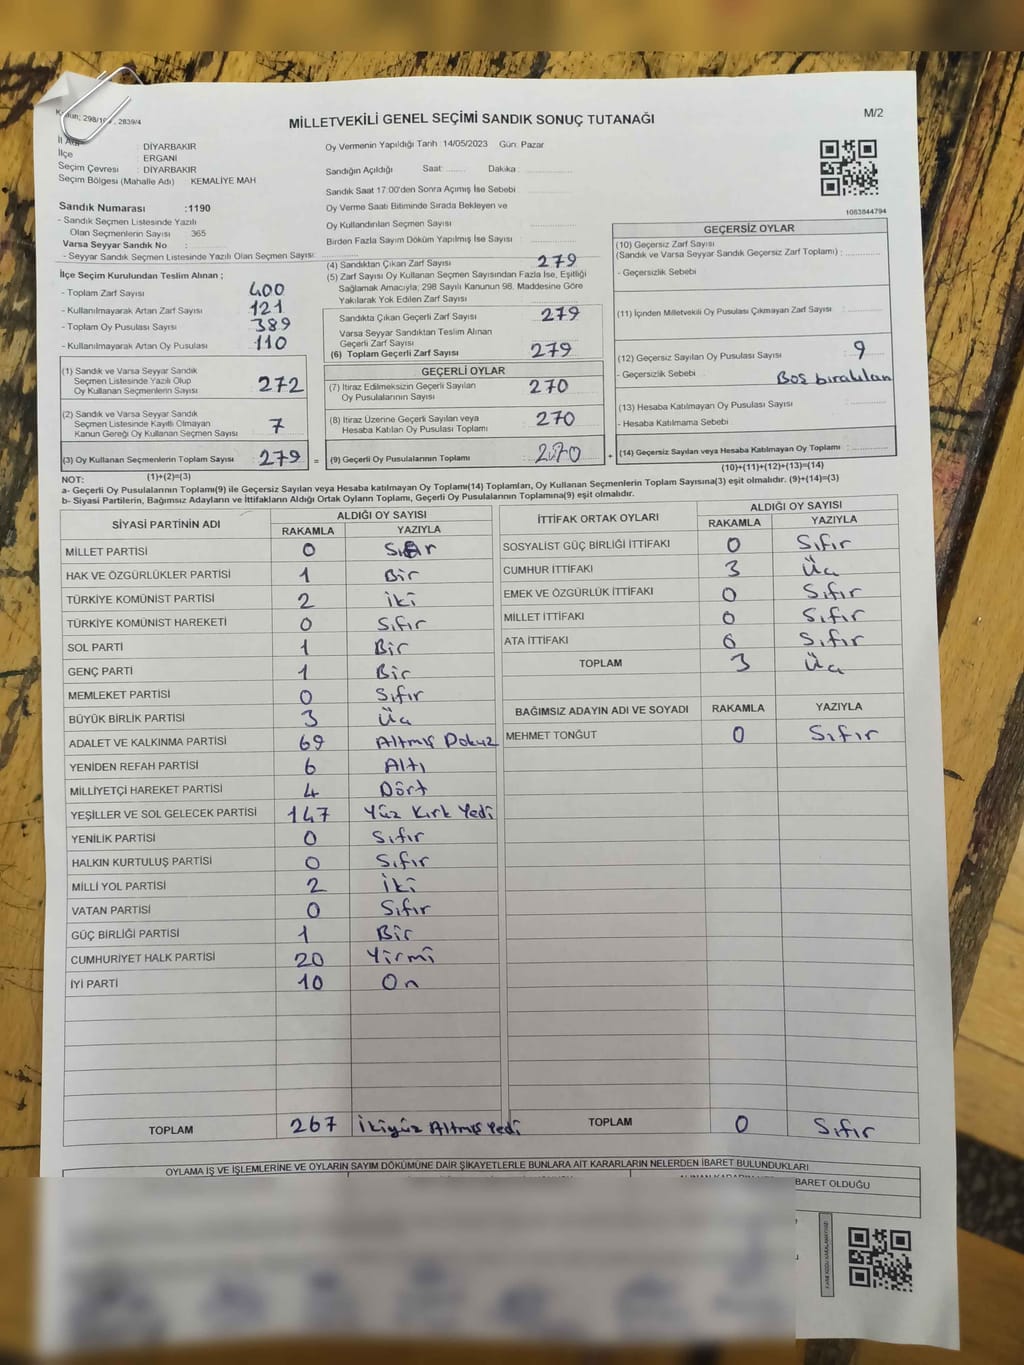 M/2
2839/4
MİLLETVEKİLİ GENEL SEÇİMİ SANDIK SONUÇ TUTANAĞI
: DİYARBAKIR
İlçe : ERGANİ
Seçim Çevresi : DİYARBAKIR
Seçim Bölgesi (Mahalle Adı) KEMALİYE MAH
Oy Vermenin Yapıldığı Tarih 14/05/2023 Gün: Pazar
Sandığın Açıldığı Saat: ....... Dakika : ..............
Sandık Saat 17:00'den Sonra Açımış İse Sebebi ..............
Oy Verme Saati Bitiminde Sırada Bekleyen ve
Oy Kullandırılan Seçmen Sayısı ..............
Birden Fazla Sayım Döküm Yapılmış İse Sayısı ..............
1083844794
Sandık Numarası :1190
- Sandık Seçmen Listesinde Yazılı
Olan Seçmenlerin Sayısı 365
Varsa Seyyar Sandık No :
- Seyyar Sandık Seçmen Listesinde Yazılı Olan Seçmen Sayısı:
İlçe Seçim Kurulundan Teslim Alınan ;
- Toplam Zarf Sayısı 400
- Kullanılmayarak Artan Zarf Sayısı 121
- Toplam Oy Pusulası Sayısı 389
- Kullanılmayarak Artan Oy Pusulası 110
(1) Sandık ve Varsa Seyyar Sandık
Seçmen Listesinde Yazılı Olup
Oy Kullanan Seçmenlerin Sayısı 272
(2) Sandık ve Varsa Seyyar Sandık
Seçmen Listesinde Kayıtlı Olmayan
Kanun Gereği Oy Kullanan Seçmen Sayısı 7
(3) Oy Kullanan Seçmenlerin Toplam Sayısı 279 =
(1)+(2)=(3)
(4) Sandıktan Çıkan Zarf Sayısı 279
(5) Zarf Sayısı Oy Kullanan Seçmen Sayısından Fazla İse, Eşitliği
Sağlamak Amacıyla; 298 Sayılı Kanunun 98. Maddesine Göre
Yakılarak Yok Edilen Zarf Sayısı
Sandıkta Çıkan Geçerli Zarf Sayısı 279
Varsa Seyyar Sandıktan Teslim Alınan
Geçerli Zarf Sayısı
(6) Toplam Geçerli Zarf Sayısı 279
GEÇERLİ OYLAR
(7) İtiraz Edilmeksizin Geçerli Sayılan
Oy Pusulalarının Sayısı 270
(8) İtiraz Üzerine Geçerli Sayılan veya
Hesaba Katılan Oy Pusulası Toplamı 270
(9) Geçerli Oy Pusulalarının Toplamı 270 +
GEÇERSİZ OYLAR
(10) Geçersiz Zarf Sayısı
(Sandık ve Varsa Seyyar Sandık Geçersiz Zarf Toplamı) :
- Geçersizlik Sebebi
(11) İçinden Milletvekili Oy Pusulası Çıkmayan Zarf Sayısı :
(12) Geçersiz Sayılan Oy Pusulası Sayısı 9
- Geçersizlik Sebebi Boş bırakılan
(13) Hesaba Katılmayan Oy Pusulası Sayısı
- Hesaba Katılmama Sebebi
(14) Geçersiz Sayılan veya Hesaba Katılmayan Oy Toplamı :
(10)+(11)+(12)+(13)=(14)
NOT:
a- Geçerli Oy Pusulalarının Toplamı(9) ile Geçersiz Sayılan veya Hesaba katılmayan Oy Toplamı(14) Toplamları, Oy Kullanan Seçmenlerin Toplam Sayısına(3) eşit olmalıdır. (9)+(14)=(3)
b- Siyasi Partilerin, Bağımsız Adayların ve İttifakların Aldığı Ortak Oyların Toplamı, Geçerli Oy Pusulalarının Toplamına(9) eşit olmalıdır.
SİYASİ PARTİNİN ADI ALDIĞI OY SAYISI
RAKAMLA YAZIYLA
MİLLET PARTİSİ 0
HAK VE ÖZGÜRLÜKLER PARTİSİ 1 Bir
TÜRKİYE KOMÜNİST PARTİSİ 2 iki
TÜRKİYE KOMÜNİST HAREKETİ 0 Sıfır
SOL PARTİ 1 Bir
GENÇ PARTİ 1 Bir
MEMLEKET PARTİSİ 0 Sıfır
BÜYÜK BİRLİK PARTİSİ 3 Üç
ADALET VE KALKINMA PARTİSİ 69 Altmış Dokuz
YENİDEN REFAH PARTİSİ 6 Altı
MİLLİYETÇİ HAREKET PARTİSİ 4 Dört
YEŞİLLER VE SOL GELECEK PARTİSİ 147 Yüz Kırk Yedi
YENİLİK PARTİSİ 0 Sıfır
HALKIN KURTULUŞ PARTİSİ 0 Sıfır
MİLLİ YOL PARTİSİ 2 İki
VATAN PARTİSİ 0 Sıfır
GÜÇ BİRLİĞİ PARTİSİ 1 Bir
CUMHURİYET HALK PARTİSİ 20 Yirmi
İYİ PARTİ 10 On
TOPLAM 267 İkiyüz Altmış Yedi
İTTİFAK ORTAK OYLARI ALDIĞI OY SAYISI
RAKAMLA YAZIYLA
SOSYALİST GÜÇ BİRLİĞİ İTTİFAKI 0 Sıfır
CUMHUR İTTİFAKI 3 Üç
EMEK VE ÖZGÜRLÜK İTTİFAKI 0 Sıfır
MİLLET İTTİFAKI 0 Sıfır
ATA İTTİFAKI 0 Sıfır
TOPLAM 3 Üç
BAĞIMSIZ ADAYIN ADI VE SOYADI RAKAMLA YAZIYLA
MEHMET TONĞUT 0 Sıfır
TOPLAM 0 Sıfır
OYLAMA İŞ VE İŞLEMLERİNE VE OYLARIN SAYIM DÖKÜMÜNE DAİR ŞİKAYETLERLE BUNLARA AİT KARARLARIN NELERDEN İBARET BULUNDUKLARI
BARET OLDUĞU